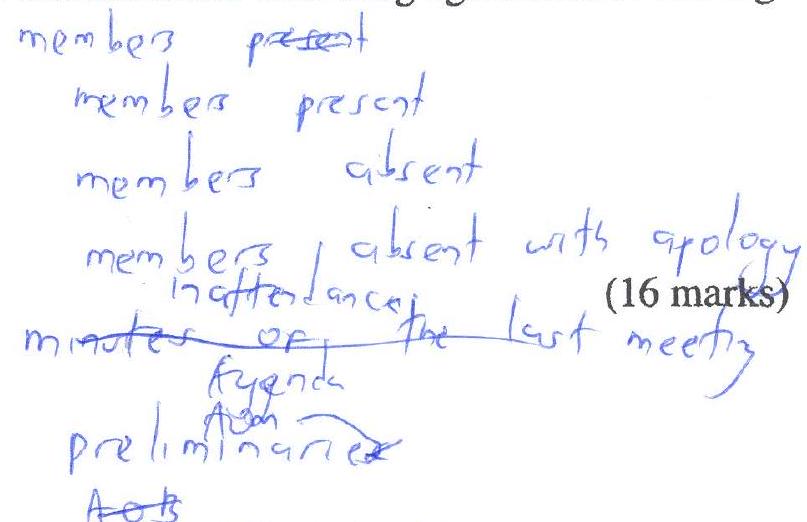 members present
members present
members absent
members absent with apology
inattendance
(16 marks)
minutes of the last meeting
Agenda
preliminaries
AOB